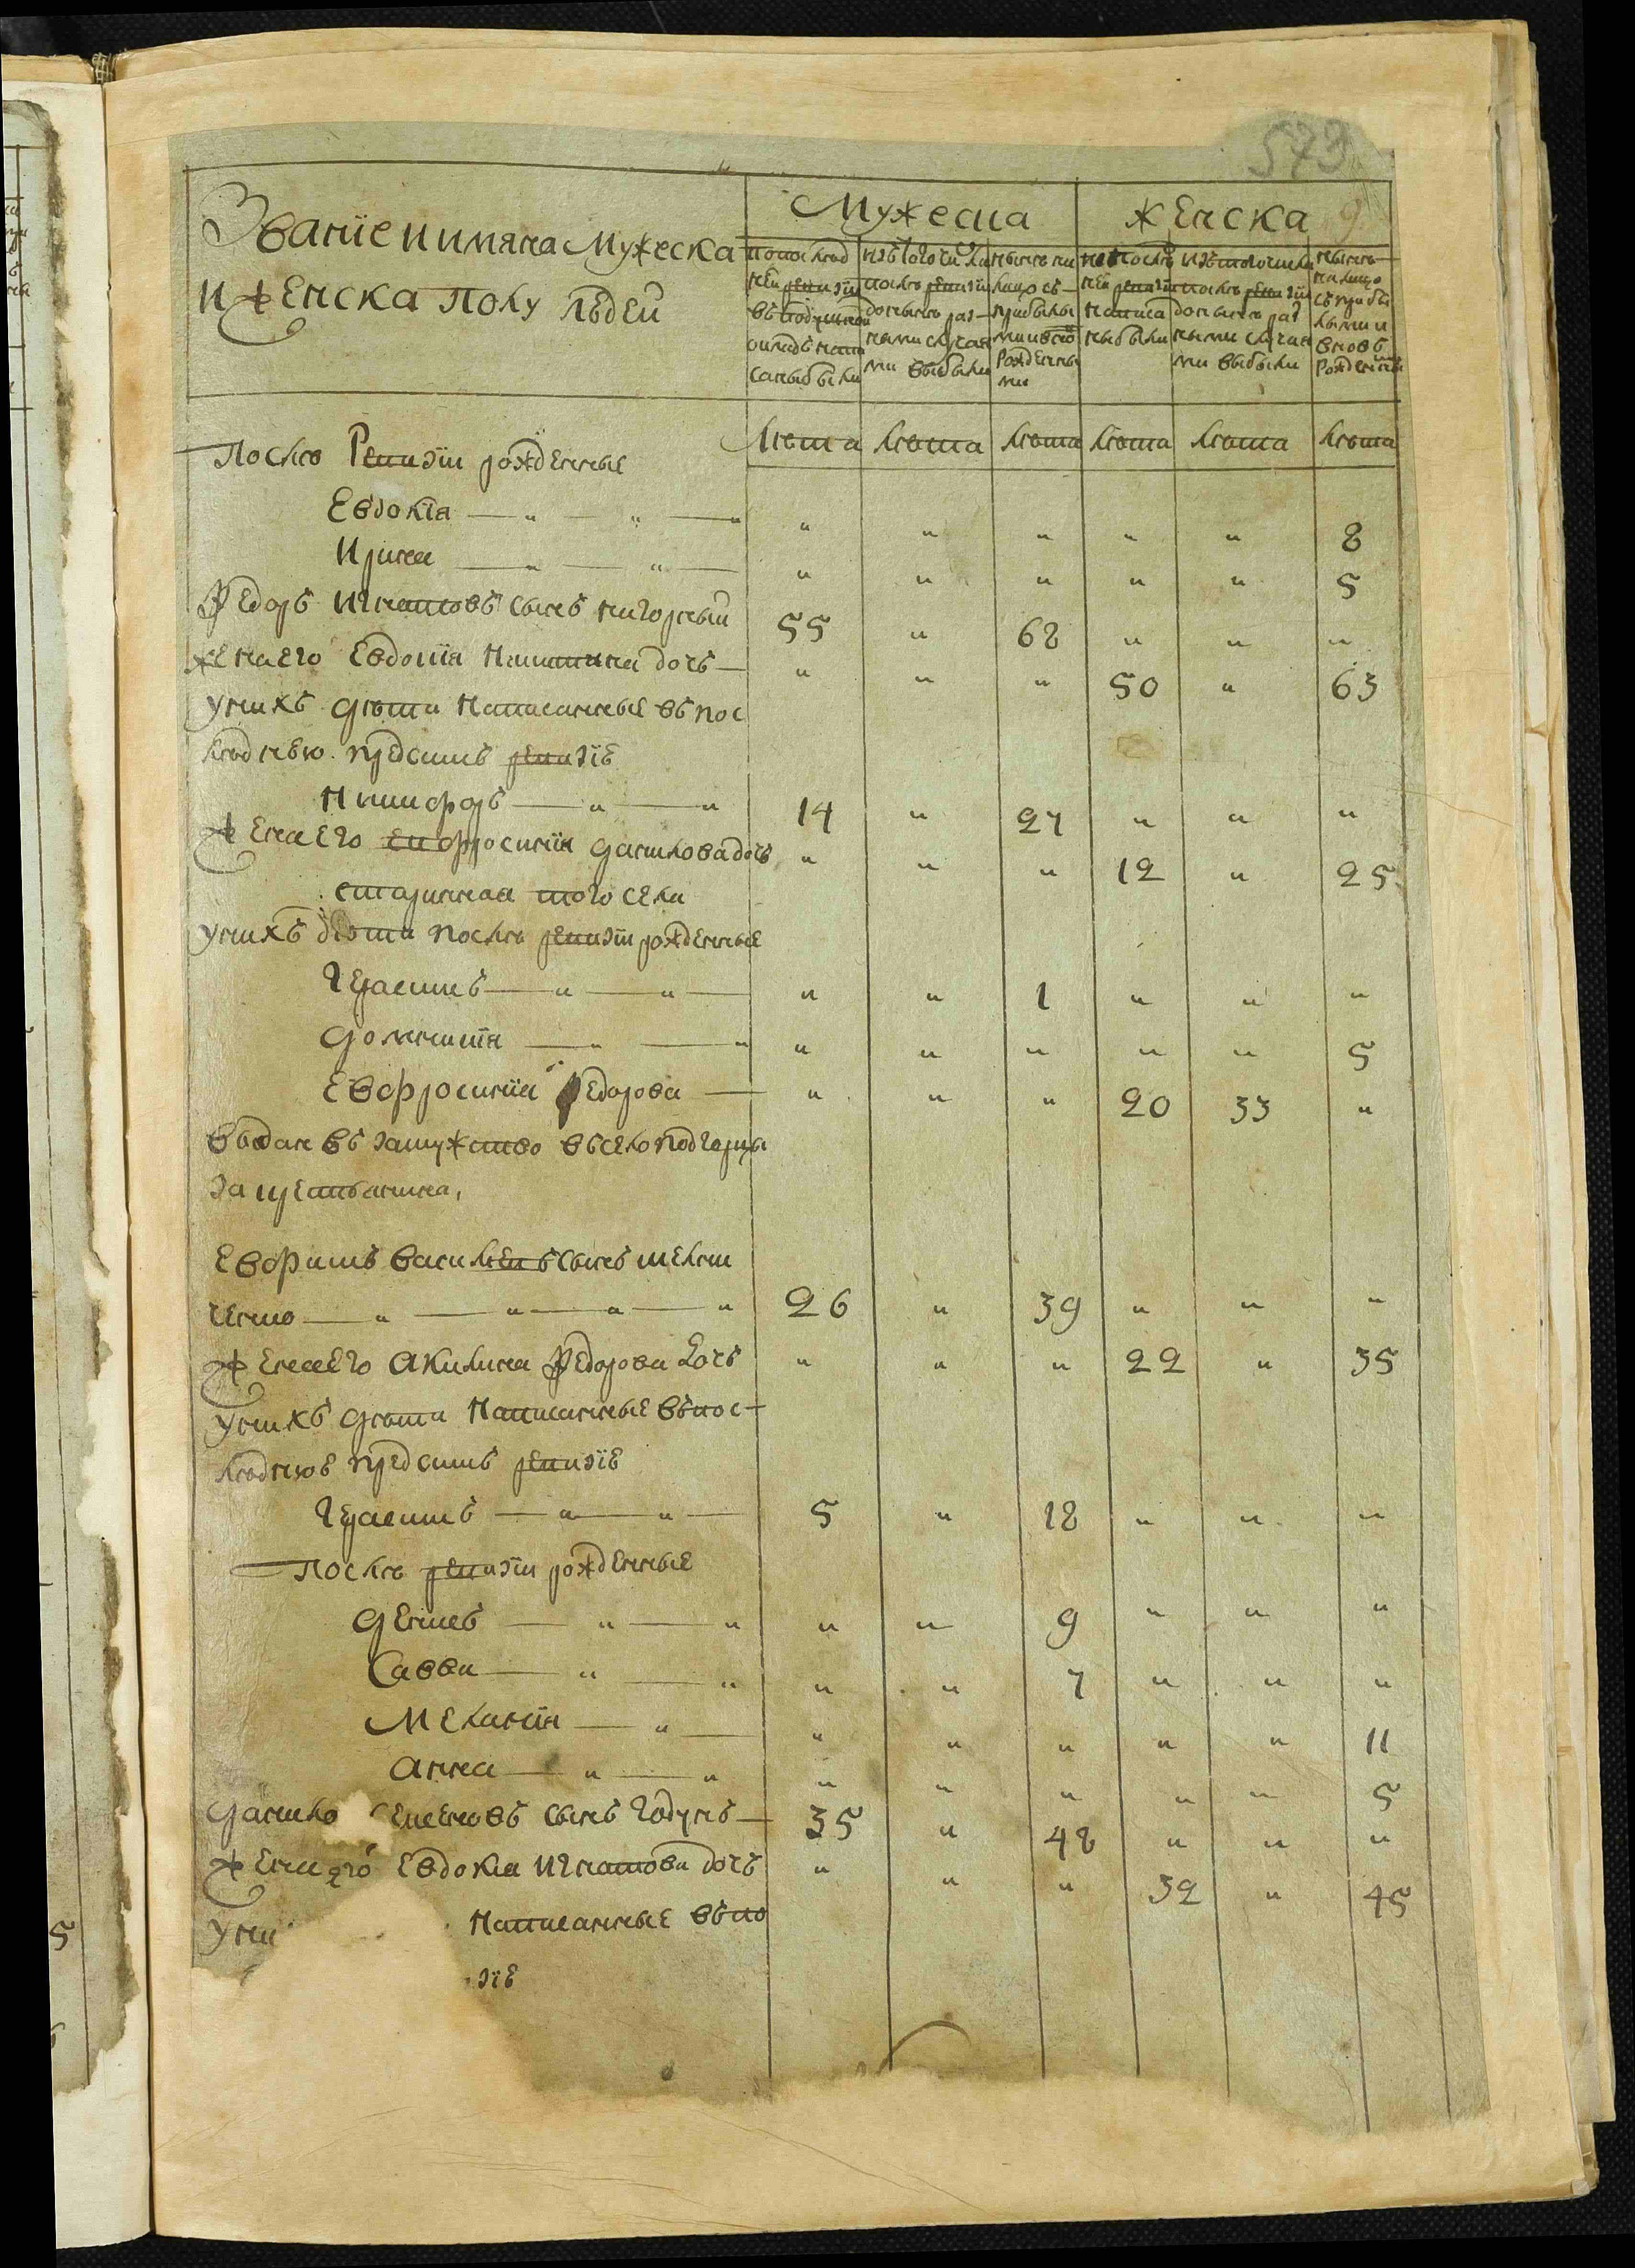 573
9
Званїе и имяна Мужеска
и женска полу людей
Мужеска
женска
по послѣд
ней ревизїи
въ подушной
окладъ напи
саны были
изъ того числа
послѣ ревизїи
до нынѣ раз
ными случая
ми выбыли
нынѣ на
лицо съ
прибылы
ми и вновь
рожденны
ми
по послѣд
ней ревизїи
написа
ны были
изъ того числа
послѣ ревизїи
до нынѣ раз
ными случая
ми выбыли
нынѣ
на лицо
съ прибы
лыми и
вновь
рожденными
лѣта лѣта лѣта лѣта лѣта лѣта
Послѣ Ревизїи рожденные
Евдокїа — " — " — " " " " " " 8
Ирина — " — " — " " " " " 5
Федоръ Игнатовъ сынъ нагорный 55 " 68 " " "
жена его Евдокїя Никитина дочь — " " " 50 " 63
у нихъ дѣти написанные въ пос
лѣднею пред симъ ревизїе
Никифоръ — " — " 14 " 27 " " "
жена его Евфросинїя данилова дочь " " " 12 " 25
старинная того села
у нихъ дѣти послѣ ревизїи рожденные
Герасимъ — " — " — " " 1 " " "
домникїя — " — " " " " " " 5
Евфросинїя Федорова — " " " 20 33 "
выдан въ замужство в село подгорцы
за крестьянина,
Ефримъ Василїевъ сынъ шелем
ченко — " — " — " — " 26 " 39 " " "
жена его Акилина Федорова дочь " " " 22 " 35
у нихъ дѣти написанные въ пос-
лѣднюе предсимъ ревизїе
Герасимъ — " — " — 5 " 18 " " "
Послѣ ревизїи рожденные
денисъ — " — " " " 9 " " "
Савва — " — " " " 7 " " "
Меланїя — " — " " " " " 11
анна — " — " " " " " " 5
данило Семеновъ сынъ Годунъ — 35 " 48 " " "
жена его Евдокия Игнатова дочь " " " 32 " 45
у ни написанные въ по
зїе
5